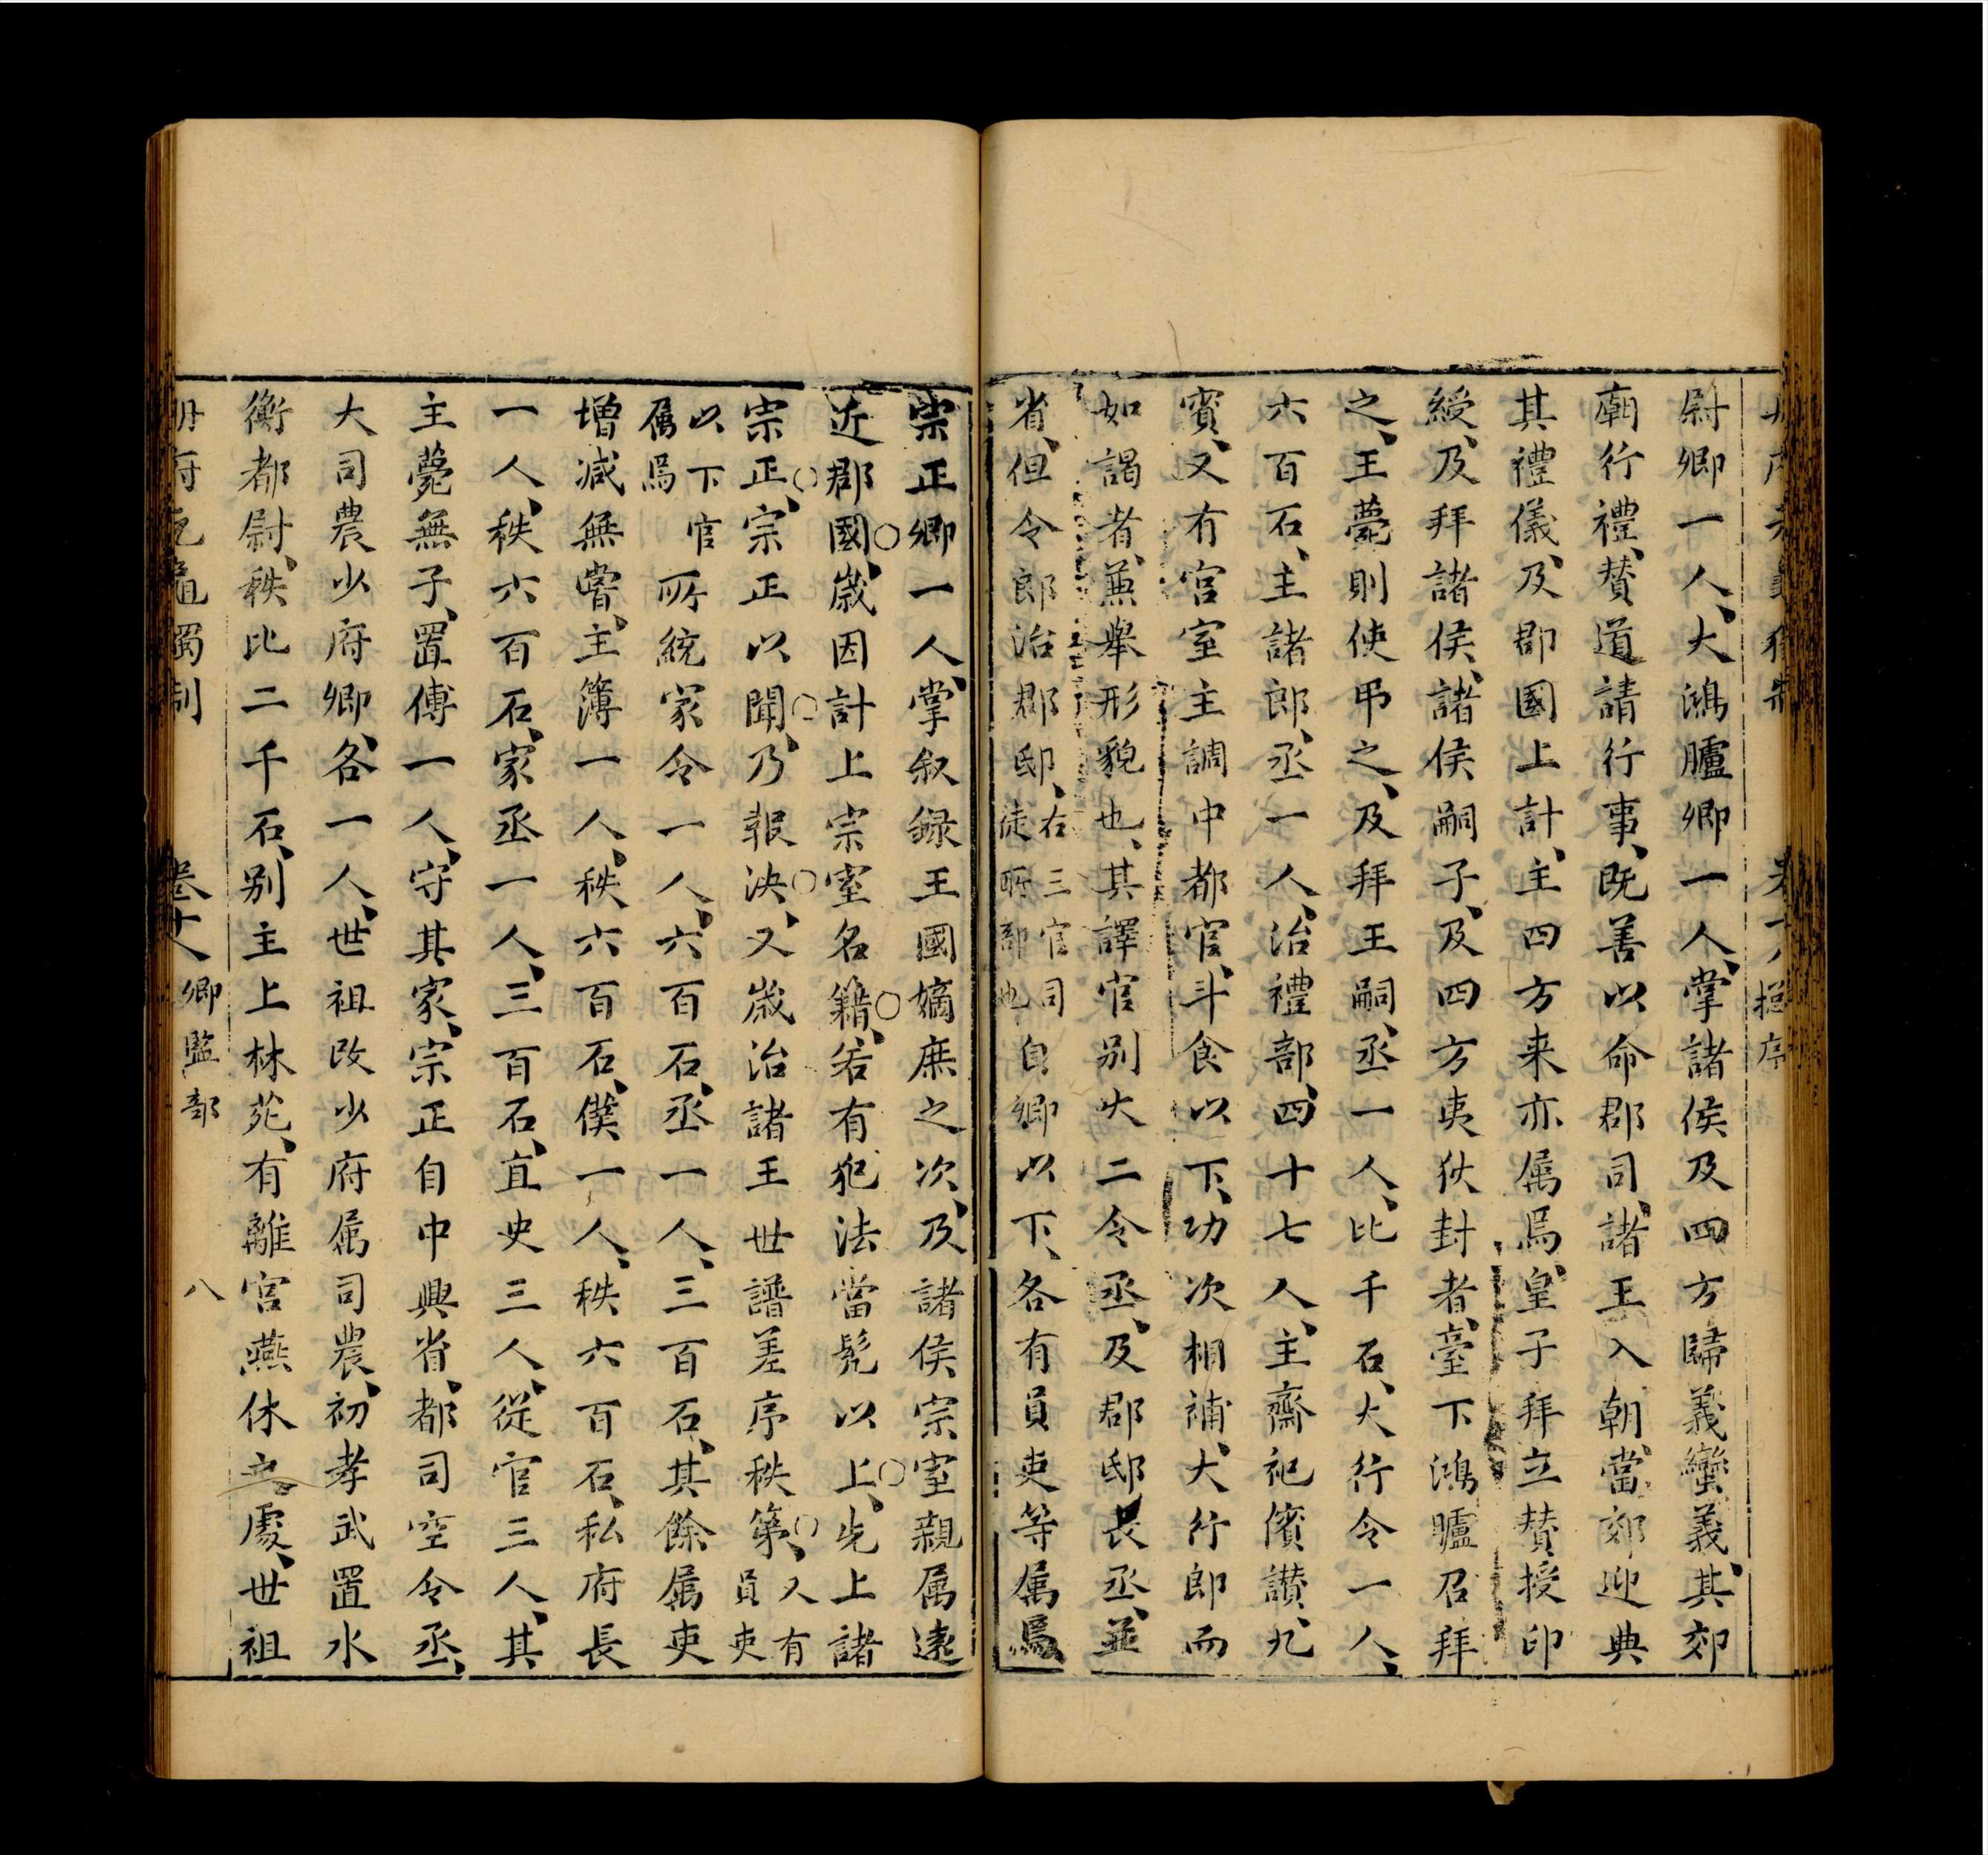 尉卿一人、大鴻臚卿一人、掌諸侯及四方歸義蠻義、其郊
廟行禮、賛道請行事、既善以命郡司、諸王入朝、當郊迎典
其禮儀、及郡國上計、主四方来亦属焉、皇子拜立賛授印
綬、及拜諸侯、諸侯嗣子、及四方夷狄封者、臺下鴻臚召拜
之、王薨則使弔之、及拜王嗣、丞一人、比千石、大行令一人、
六百石、主諸郎、丞一人、治禮部、四十七人、主齋祀儐讃、九
賓、又有官室主調中都官、斗食以下、功次相補、大行郎而
如謁者、兼舉形貌也、其譯官别火二令丞、及郡邸長丞、並
省、但令郎治郡邸、右三官同徒所部也自卿以下、各有員吏等属焉
宗正卿一人、掌叙録王國嫡庶之次、及諸侯宗室親属遠
近郡國、歲因計上宗室名籍、若有犯法當髡以上、先上諸
宗正、宗正以聞、乃報决、又歲治諸王世譜差序秩第、又有員吏
以下官属焉所統家令一人、六百石、丞一人、三百石、其餘属吏
增减無嘗、主簿一人、秩六百石、僕一人、秩六百石、私府長
一人、秩六百石、家丞一人、三百石、直吏三人、從官三人、其
主薨無子、置傅一人、守其家、宗正自中興省、都司空令丞、
大司農少府卿、各一人、世祖改少府属司農、初孝武置水
衡都尉、秩比二千石、别主上林苑、有離宫燕休之處、世祖
卷十八 卿監部 八